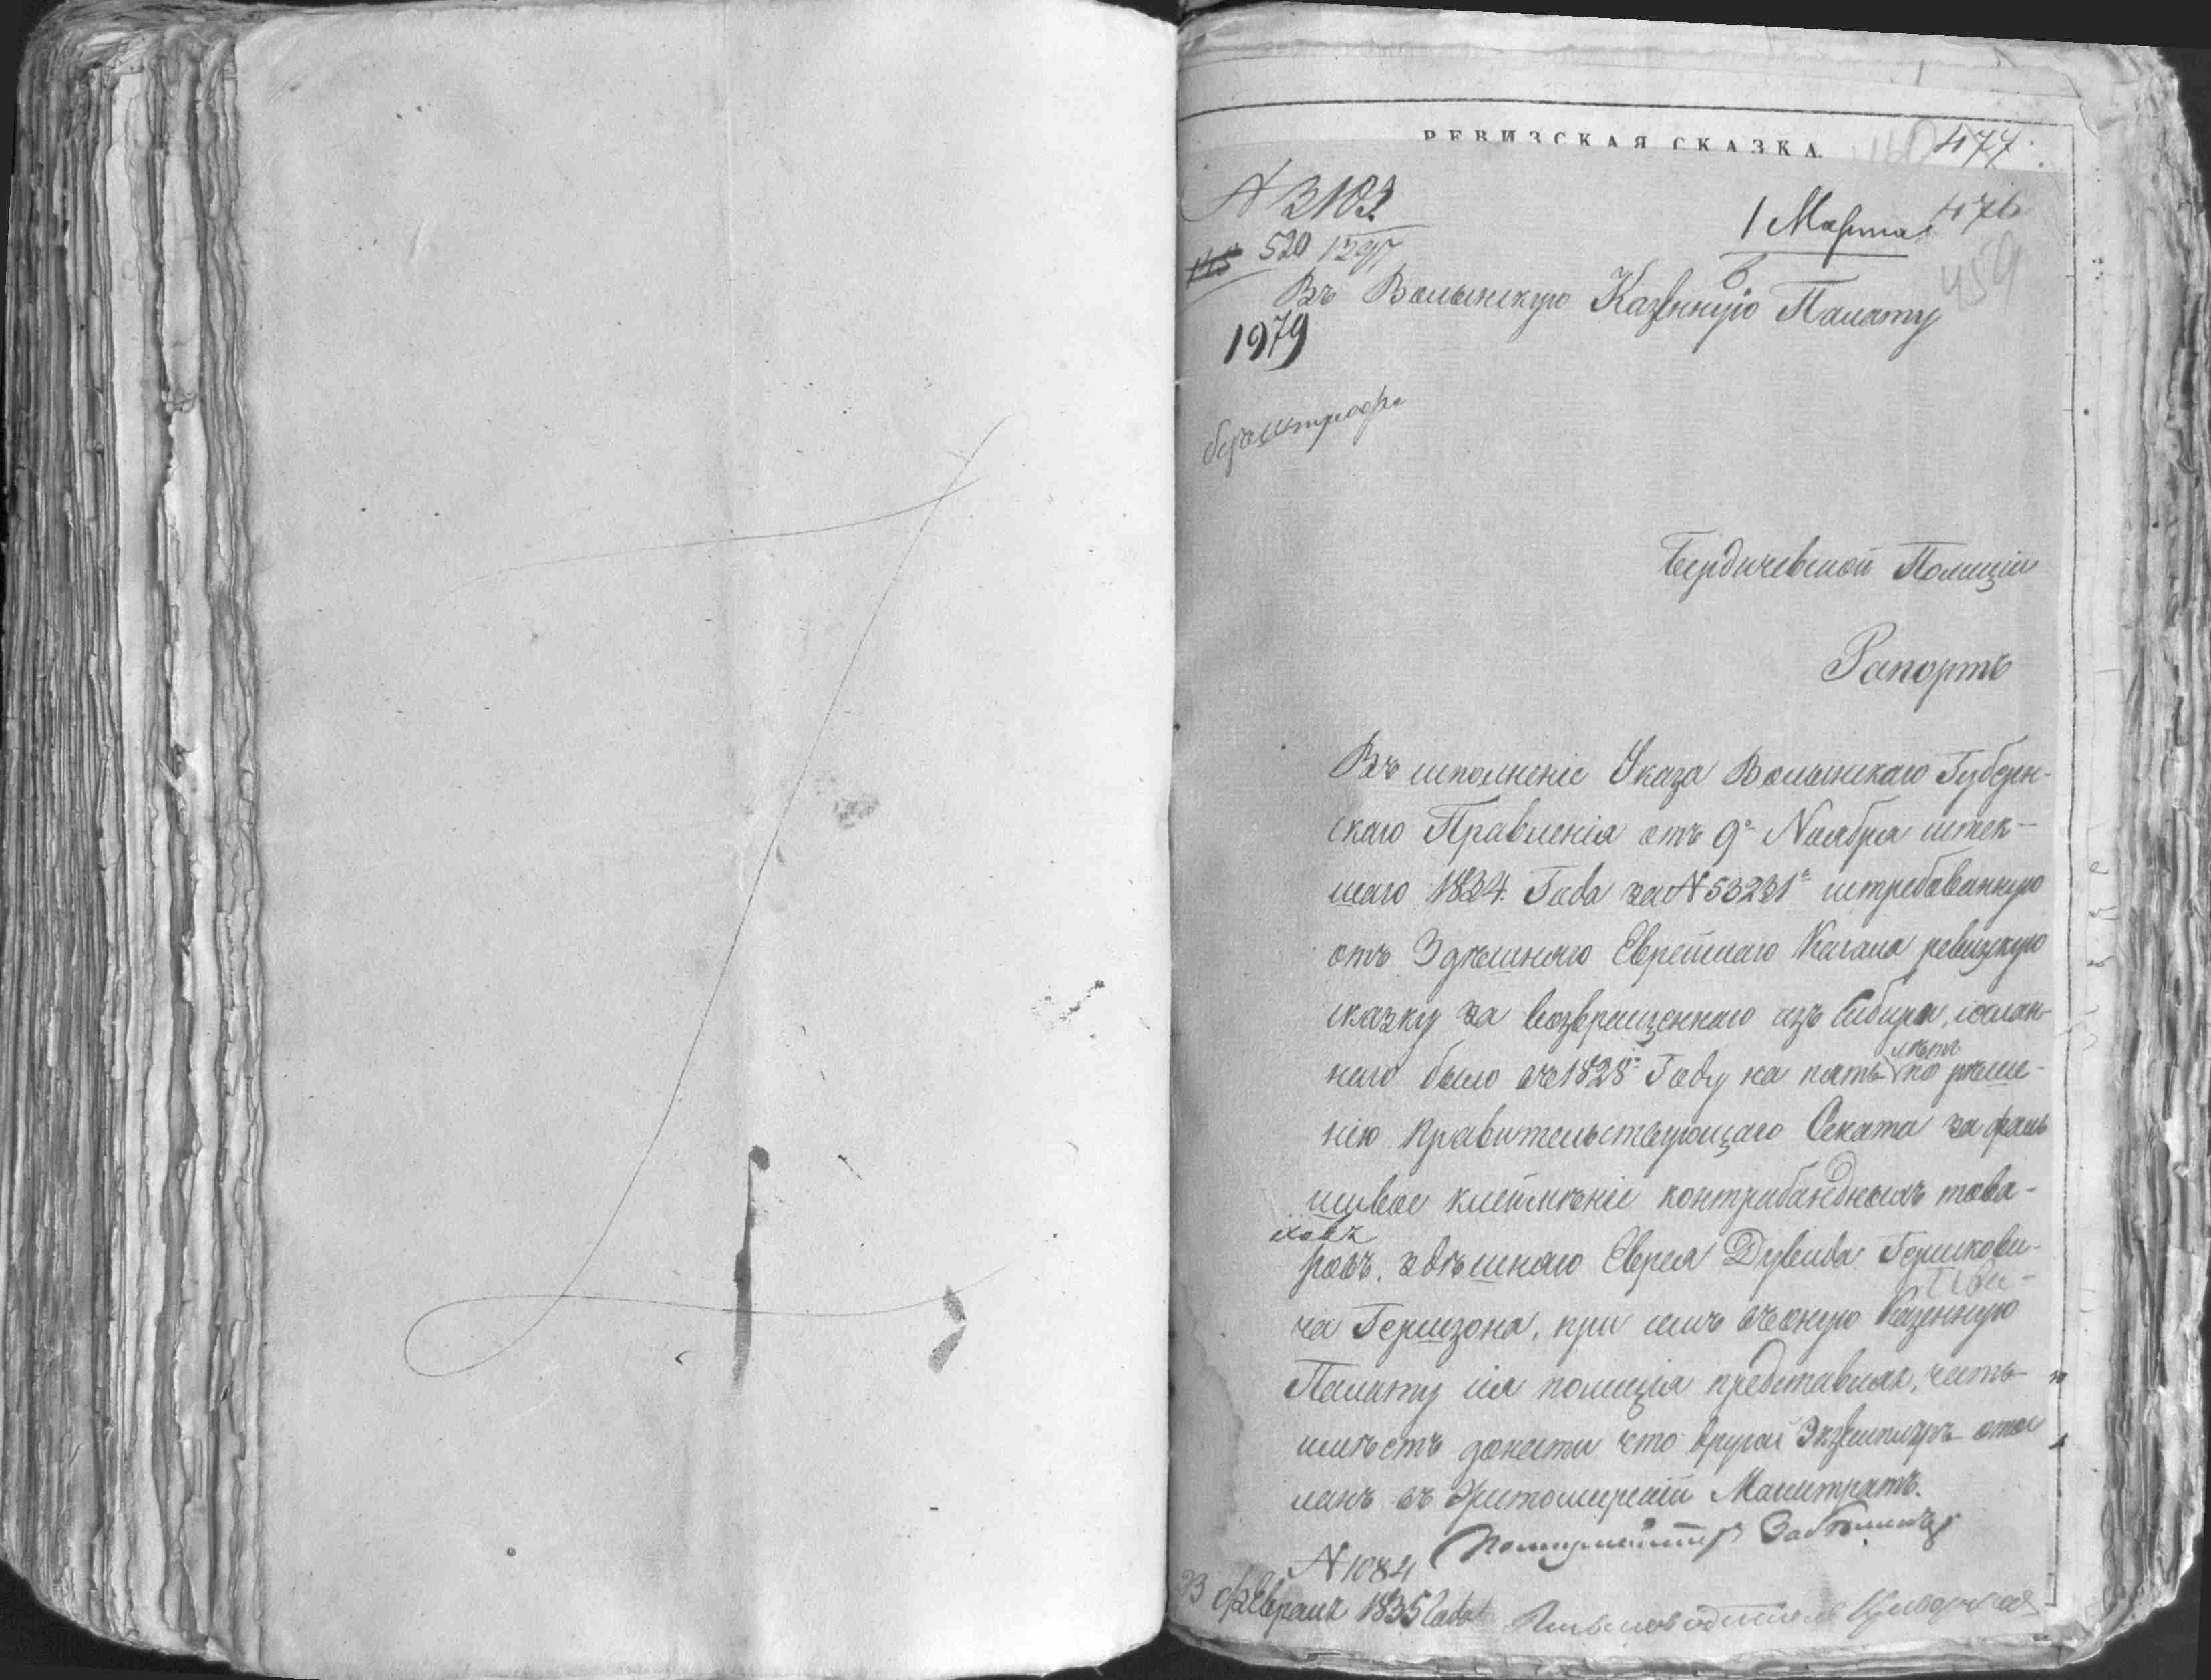 РЕВИЗСКАЯ СКАЗКА.
477
№ 3183
1 Марта 476
145 520 1297
459
Въ Волынскую Казенную Палату
1979
безъ штрафа
Бердичевской Полиціи
Рапортъ
Въ исполненіе Указа Волынскаго Губерн-
скаго Правленія отъ 9го Ноября истек-
шаго 1834. Года за № 53231м истребованную
отъ Здѣшняго Еврейскаго Кагала ревизскую
сказку за возвращеннаго изъ Сибири, сослан-
наго было въ 1828м Году на пять лѣтъ по рѣше-
нію Правительствующаго Сената за фаль
шивое клейменіе контрабандныхъ това-
ровъ, здѣшняго Еврея Дувида Гершкови-
ча Гершзона, при семъ въ оную Казенную
Палату сія полиція представляя, честь
имѣетъ донести что другой Экземпляръ отос
ланъ въ Житомирскій Магистратъ.
Полицмейстеръ
№ 1084
Февраля 1835 Года
Письмоводитель